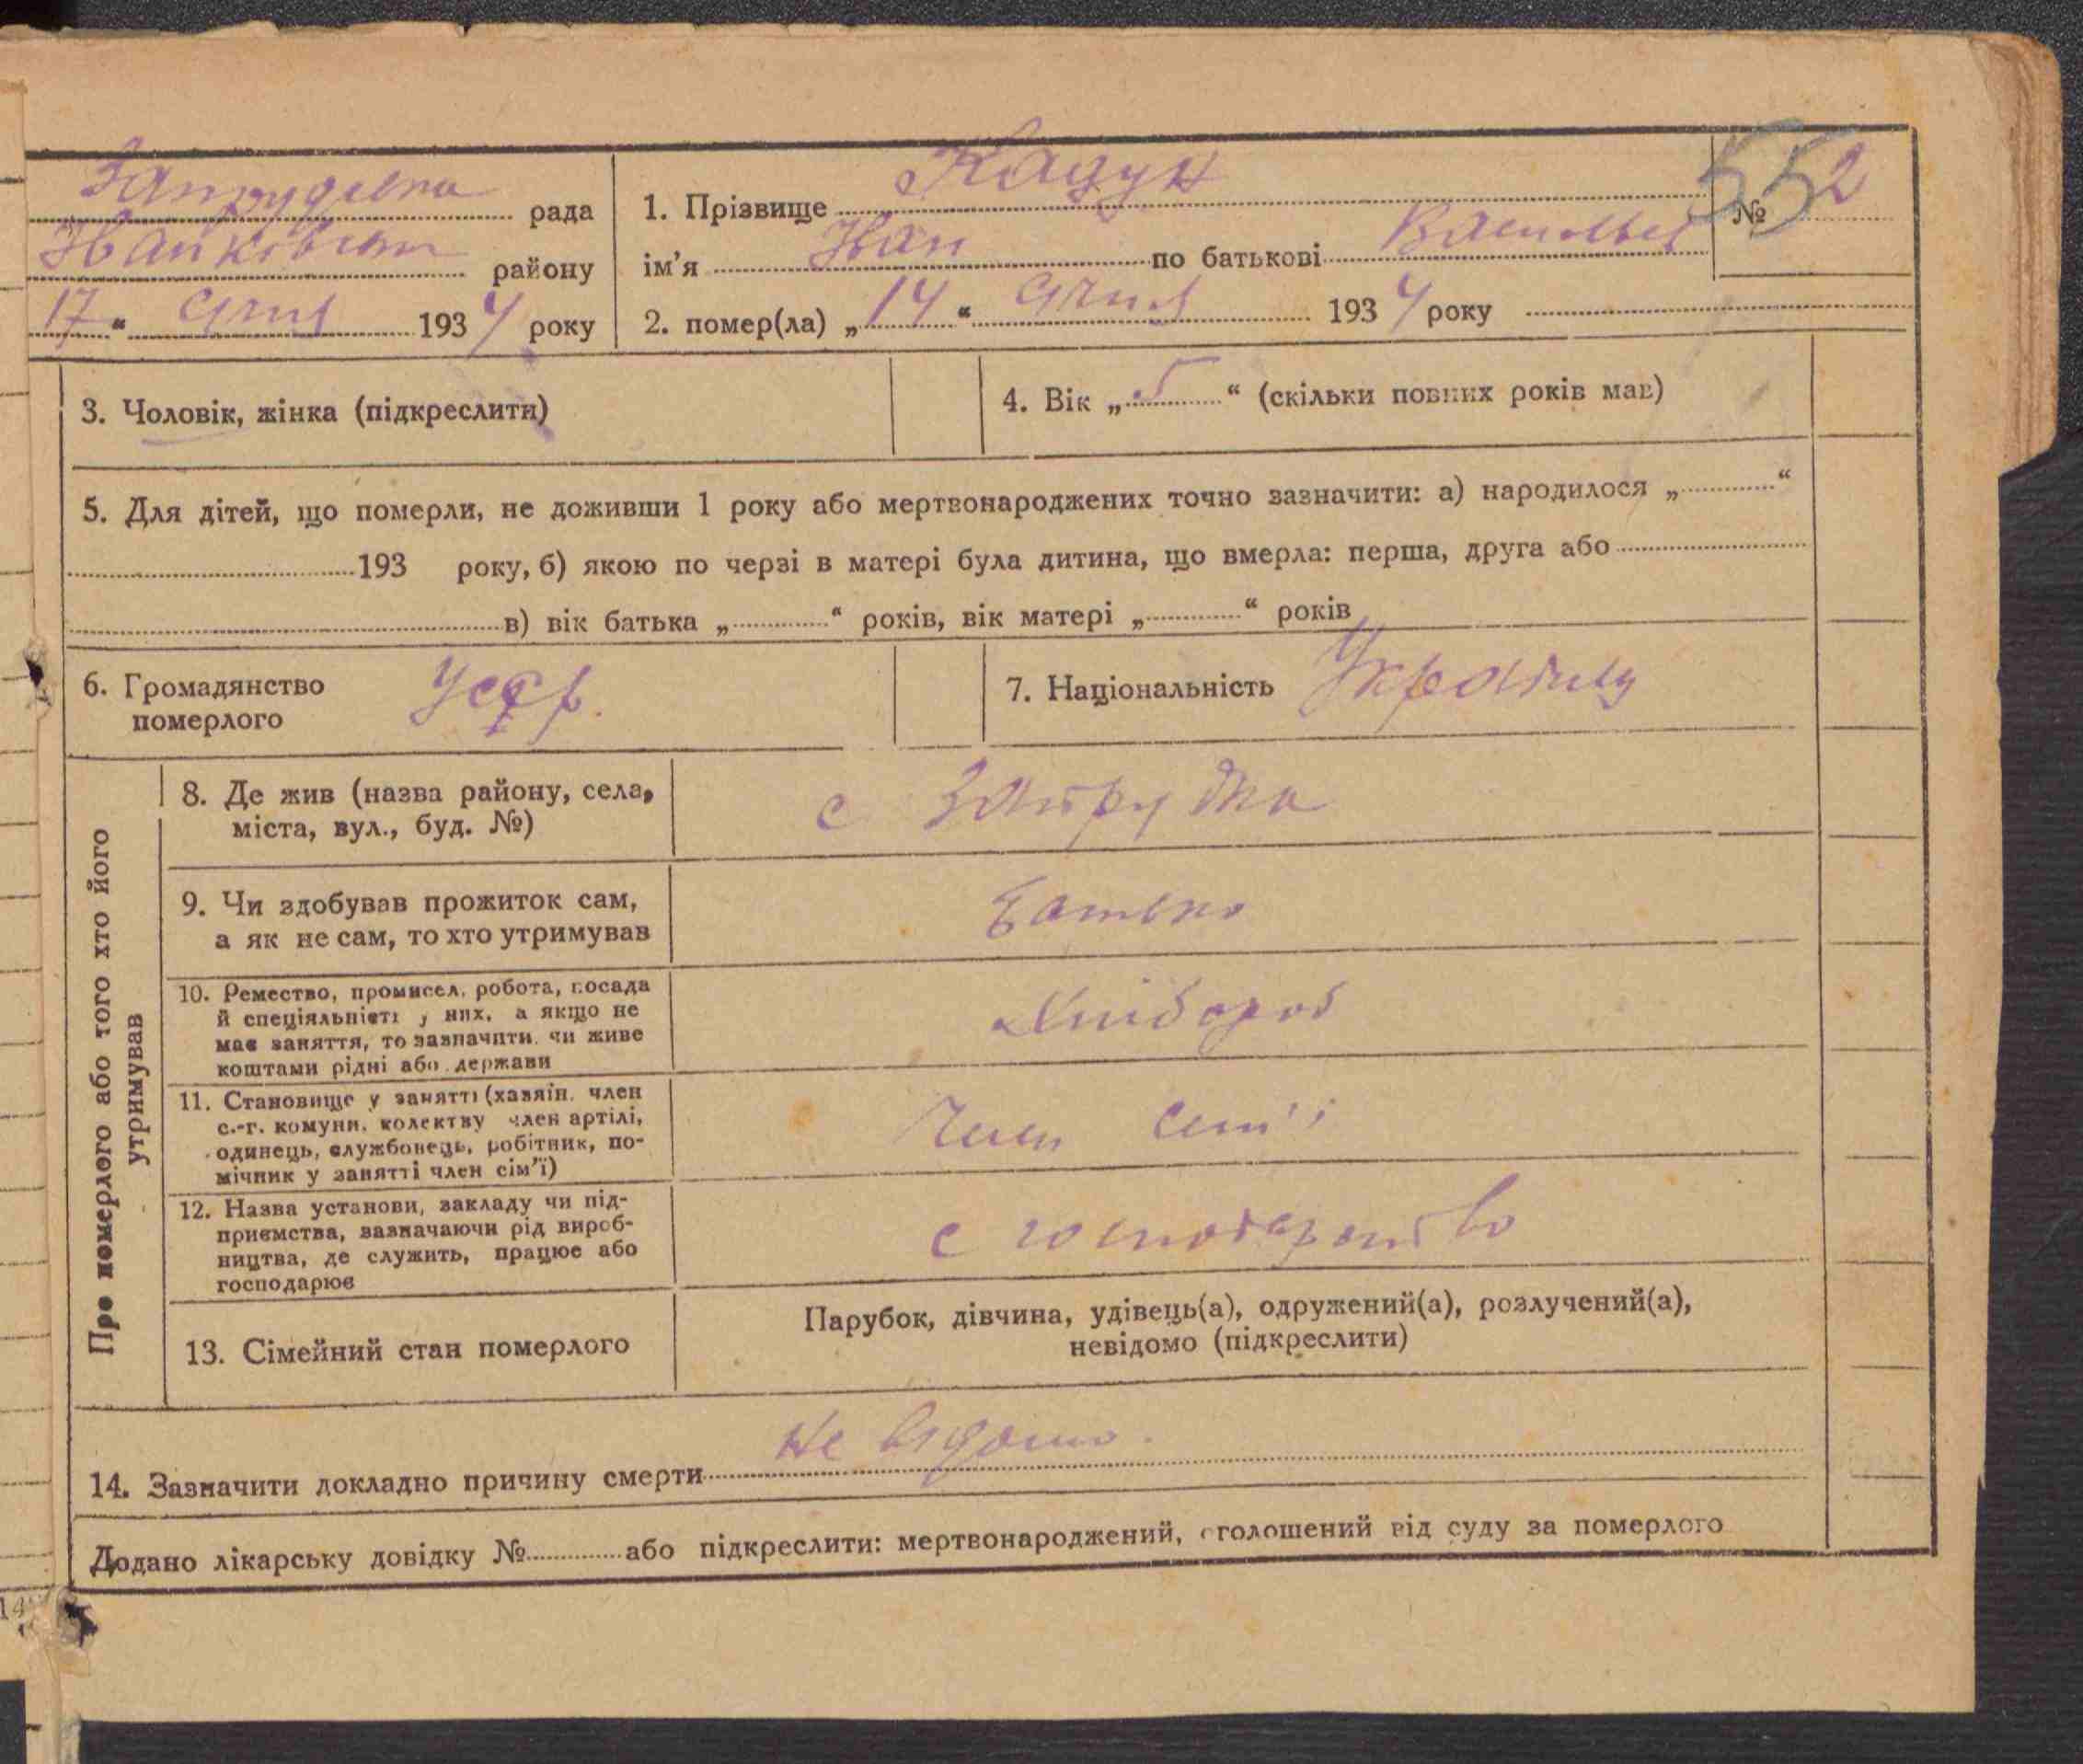 Запрудська рада
Іванківськ району
17 " Січня 1934 року
1. Прізвище Кадун
№ 552
ім'я Іван по батькові Васильов
2. помер(ла) „ 14 " Січня 1934 року
3. Чоловік, жінка (підкреслити)
4. Вік „ 5 " (скільки повних років мав)
5. Для дітей, що померли, не доживши 1 року або мертвонароджених точно зазначити: а) народилося „ "
193 року, б) якою по черзі в матері була дитина, що вмерла: перша, друга або
в) вік батька „ " років, вік матері „ " років
6. Громадянство
померлого
Усср.
7. Національність
Про померлого або того хто його
утримував
8. Де жив (назва району, села,
міста, вул., буд. №)
с Запрудка
9. Чи здобував прожиток сам,
а як не сам, то хто утримував
батько
10. Ремество, промисел, робота, посада
й спеціяльність у них, а якщо не
має заняття, то зазначити чи живе
коштами рідні або держави
Хлібороб
11. Становище у занятті (хазяїн, член
с.-г. комуни, колективу член артілі,
одинець, службовець, робітник, по-
мічник у занятті член сім'ї)
Член сем'ї
12. Назва установи, закладу чи під-
приємства, зазначаючи рід вироб-
ництва, де служить, працює або
господарює
с господарство
13. Сімейний стан померлого
Парубок, дівчина, удівець(а), одружений(а), розлучений(а),
невідомо (підкреслити)
14. Зазначити докладно причину смерти не відомо.
Додано лікарську довідку № або підкреслити: мертвонароджений, оголошений від суду за померлого
14